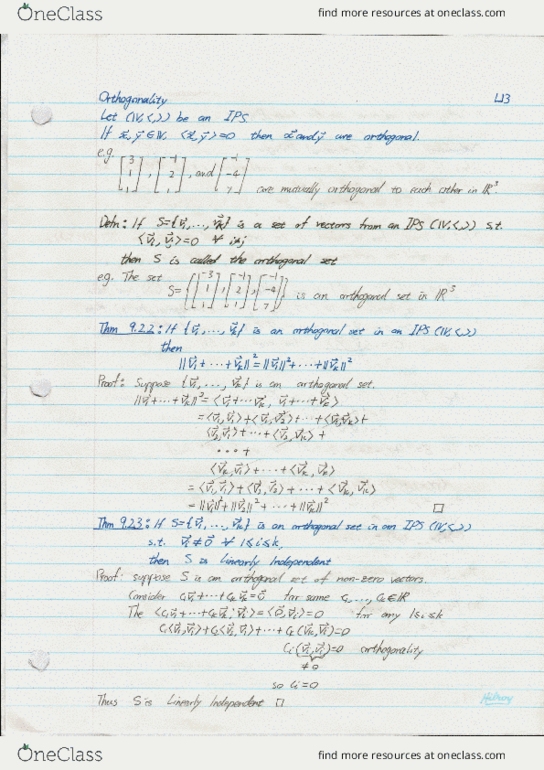 OneClass find more resources at oneclass.com
Orthogonality L13
Let (V,<,>) be an IPS
If x⃗, y⃗ ∈ V, <x⃗, y⃗> = 0 then x⃗ and y⃗ are orthogonal.
e.g. [3 1 1], [-1 2 1], and [-1 -4 7] are mutually orthogonal to each other in ℝ³.
Defn: If S={v⃗₁, ..., v⃗ₖ} is a set of vectors from an IPS (V,<,>) s.t.
<v⃗ᵢ, v⃗ⱼ>=0 ∀ i≠j
then S is called the orthogonal set
eg. The set S={[-3 1 1], [-1 2 1], [-1 -4 7]} is an orthogonal set in ℝ³
Thm 9.2.2: If {v⃗₁, ..., v⃗ₖ} is an orthogonal set in an IPS (V,<,>)
then
||v⃗₁+...+v⃗ₖ||²=||v⃗₁||²+...+||v⃗ₖ||²
Proof: Suppose {v⃗₁, ..., v⃗ₖ} is an orthogonal set.
||v⃗₁+...+v⃗ₖ||²=<v⃗₁+...v⃗ₖ, v⃗₁+...v⃗ₖ>
=<v⃗₁,v⃗₁>+<v⃗₁,v⃗₂>+...+<v⃗₁,v⃗ₖ>+
<v⃗₂,v⃗₁>+...+<v⃗₂,v⃗ₖ>+
...+
<v⃗ₖ,v⃗₁>+...+<v⃗ₖ,v⃗ₖ>
=<v⃗₁,v⃗₁>+<v⃗₂,v⃗₂>+...+<v⃗ₖ,v⃗ₖ>
=||v⃗₁||²+||v⃗₂||²+...+||v⃗ₖ||² □
Thm 9.2.3: If S={v⃗₁, ..., v⃗ₖ} is an orthogonal set in an IPS (V,<,>)
s.t. v⃗ᵢ≠0⃗ ∀ 1≤i≤k,
then S is Linearly Independent
Proof: suppose S is an orthogonal set of non-zero vectors.
Consider c₁v⃗₁+...+cₖv⃗ₖ=0⃗ for some c₁, ..., cₖ∈ℝ
The <c₁v⃗₁+...+cₖv⃗ₖ, v⃗ᵢ>=<0⃗,v⃗ᵢ>=0 for any 1≤i≤k
c₁<v⃗₁,v⃗ᵢ>+c₂<v⃗₂,v⃗ᵢ>+...+cₖ<v⃗ₖ,v⃗ᵢ>=0
cᵢ<v⃗ᵢ,v⃗ᵢ>=0 orthogonality
≠0
so cᵢ=0
Thus S is Linearly Independent □
OneClass find more resources at oneclass.com